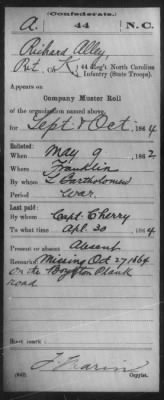 (Confederate.)
A. 44 N.C.
Richard Alley
Pvt., Co. K, 44 Reg't North Carolina
Infantry (State Troops).
Appears on
Company Muster Roll
of the organization named above,
for Sept & Oct, 1864
Enlisted:
When May 9, 1862
Where Franklin
By whom L Bartholomew
Period War
Last paid:
By whom Capt. Cherry
To what time Apl. 30, 1864
Present or absent Absent
Remarks: Missing Oct 27 1864
on the Boydton Plank
road
Book mark:
(642) Copyist.